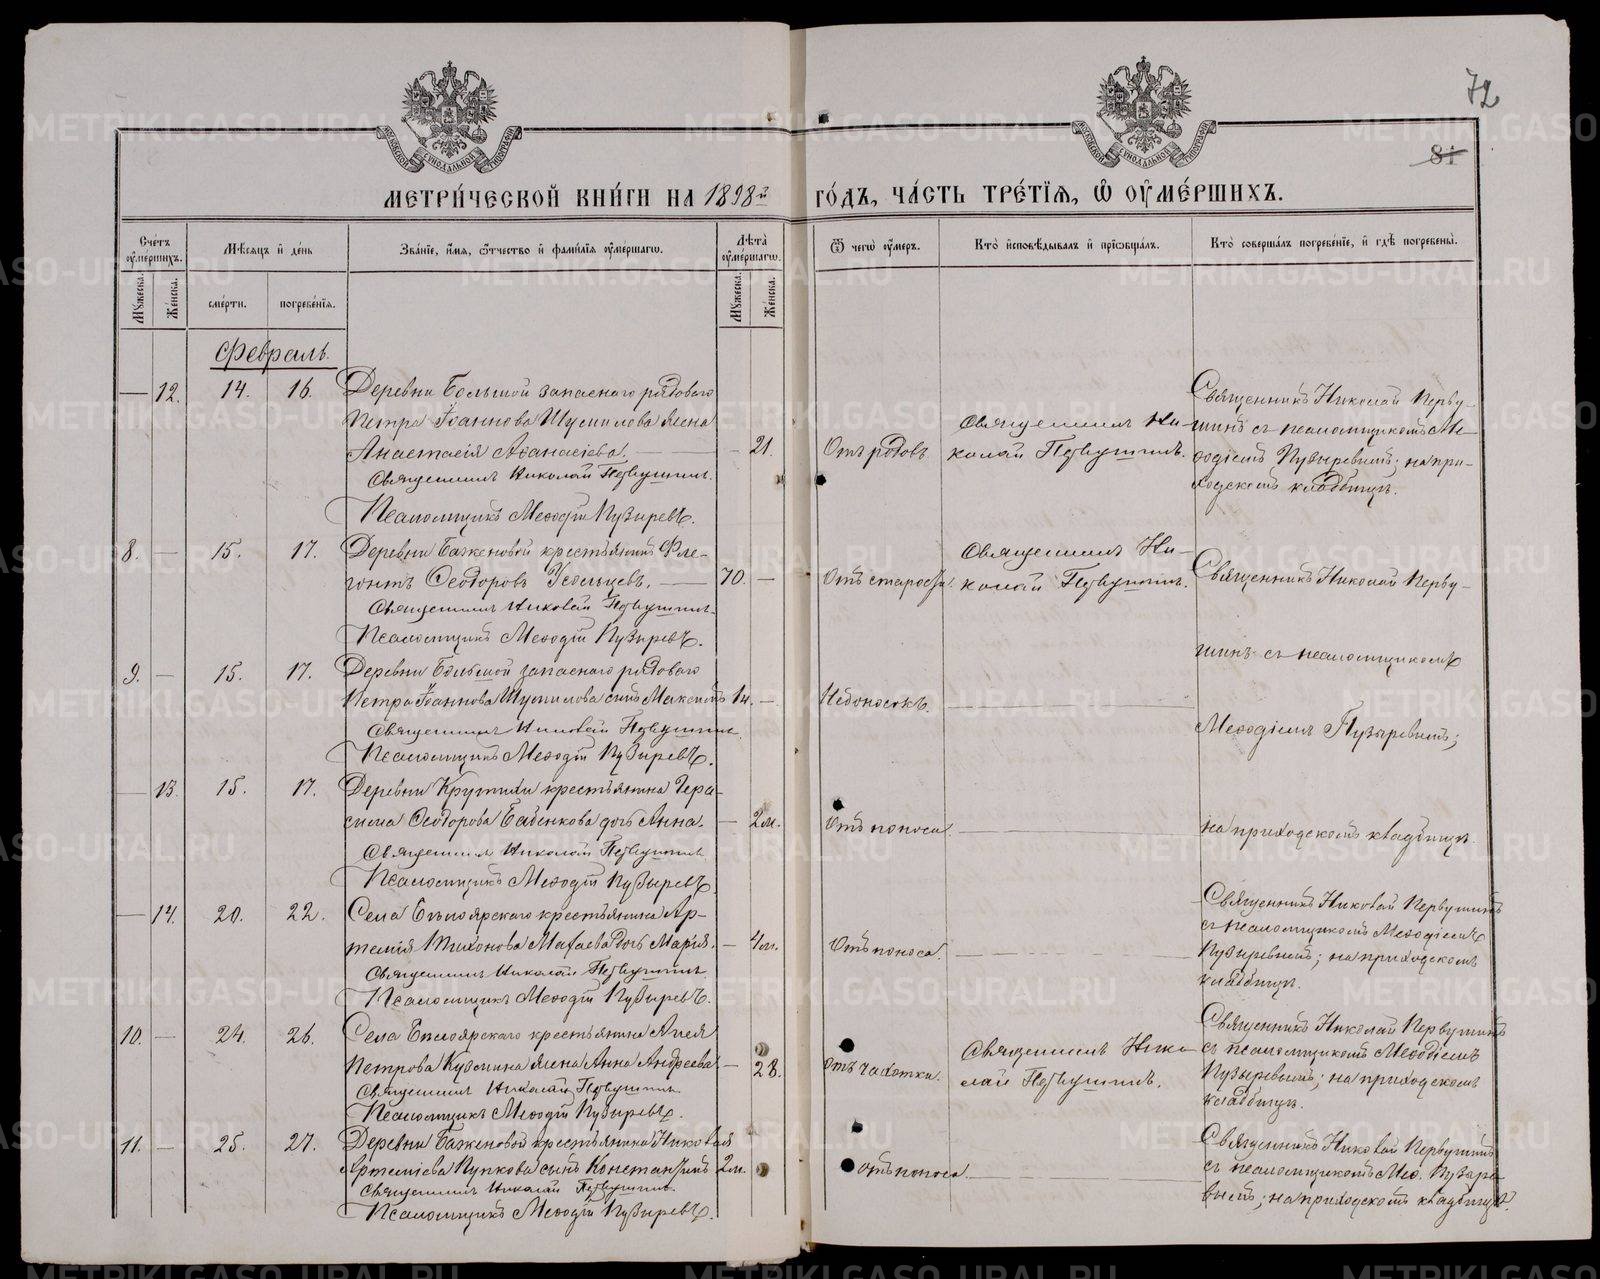 72
81
МОСКОВСКОЙ СѴНОДАЛЬНОЙ ТИПОГРАФІИ
МОСКОВСКОЙ СѴНОДАЛЬНОЙ ТИПОГРАФІИ
МЕТРИ́ЧЕСКОЙ КНИ́ГИ НА 1898й ГО́ДЪ, ЧА́СТЬ ТРЕ́ТІѦ, Ѡ҆ ОУ҆МЕ́РШИХЪ.
Сче́тъ оу҆ме́ршихъ.
Мѣ́сяцъ и҆ де́нь
Зва́нїе, и҆́мѧ, ѻ҆́тчество и҆ фами́лїѧ оу҆ме́ршагѡ.
Лѣ́та оу҆ме́ршагѡ.
Ѿ чегѡ̀ оу҆́меръ.
Кто̀ и҆сповѣ́дывалъ и҆ прїѡбща́лъ.
Кто̀ соверша́лъ погребе́нїе, и҆ гдѣ̀ погребены̀.
Мꙋ́жеска.
Же́нска.
сме́рти.
погребе́нїѧ.
Мꙋ́жеска.
Же́нска.
Февраль.
— 12. 14. 16. Деревни Большой запаснаго рядоваго
Петра Іоаннова Шумилова жена
Анастасія Аѳанасіева. — 21.
Священникъ Николай Первушинъ.
Псаломщикъ Меѳодій Пузыревъ.
Отъ родовъ.
Священникъ Ни-
колай Первушинъ.
Священникъ Николай Перву-
шинъ съ псаломщикомъ Ме-
ѳодіемъ Пузыревымъ; на при-
ходскомъ кладбищѣ.
8. — 15. 17. Деревни Баженовой крестьянинъ Фле-
гонтъ Ѳеодоровъ Усольцевъ. — 70. —
Священникъ Николай Первушинъ.
Псаломщикъ Меѳодій Пузыревъ.
Отъ старости.
Священникъ Ни-
колай Первушинъ.
Священникъ Николай Перву-
9. — 15. 17. Деревни Большой запаснаго рядоваго
Петра Іоаннова Шумилова сынъ Максимъ 1ч. —
Священникъ Николай Первушинъ.
Псаломщикъ Меѳодій Пузыревъ.
Недоносокъ. —
шинъ съ псаломщикомъ
Меѳодіемъ Пузыревымъ;
— 13. 15. 17. Деревни Крутихи крестьянина Гера-
сима Ѳеодорова Бабенкова дочь Анна. — 2м.
Священникъ Николай Первушинъ
Псаломщикъ Меѳодій Пузыревъ.
Отъ поноса. —
на приходскомъ кладбищѣ.
— 14. 20. 22. Села Бѣлоярскаго крестьянина Ар-
темія Тихонова Махаева дочь Марія. — 4м.
Священникъ Николай Первушинъ
Псаломщикъ Меѳодій Пузыревъ.
Отъ поноса. —
Священникъ Николай Первушинъ
съ псаломщикомъ Меѳодіемъ
Пузыревымъ; на приходскомъ
кладбищѣ.
10. — 24. 26. Села Бѣлоярскаго крестьянина Аггея
Петрова Кузмина жена Анна Андреева. — 28.
Священникъ Николай Первушинъ.
Псаломщикъ Меѳодій Пузыревъ.
Отъ чахотки.
Священникъ Нико-
лай Первушинъ.
Священникъ Николай Первушинъ
съ псаломщикомъ Меѳодіемъ
Пузыревымъ; на приходскомъ
кладбищѣ.
11. — 25. 27. Деревни Баженовой крестьянина Николая
Артеміева Пупкова сынъ Константинъ 2м.
Священникъ Николай Первушинъ.
Псаломщикъ Меѳодій Пузыревъ.
Отъ поноса. —
Священникъ Николай Первушинъ
съ псаломщикомъ Меѳ. Пузыре-
вымъ; на приходскомъ кладбищѣ.
METRIKI.GASO-URAL.RU